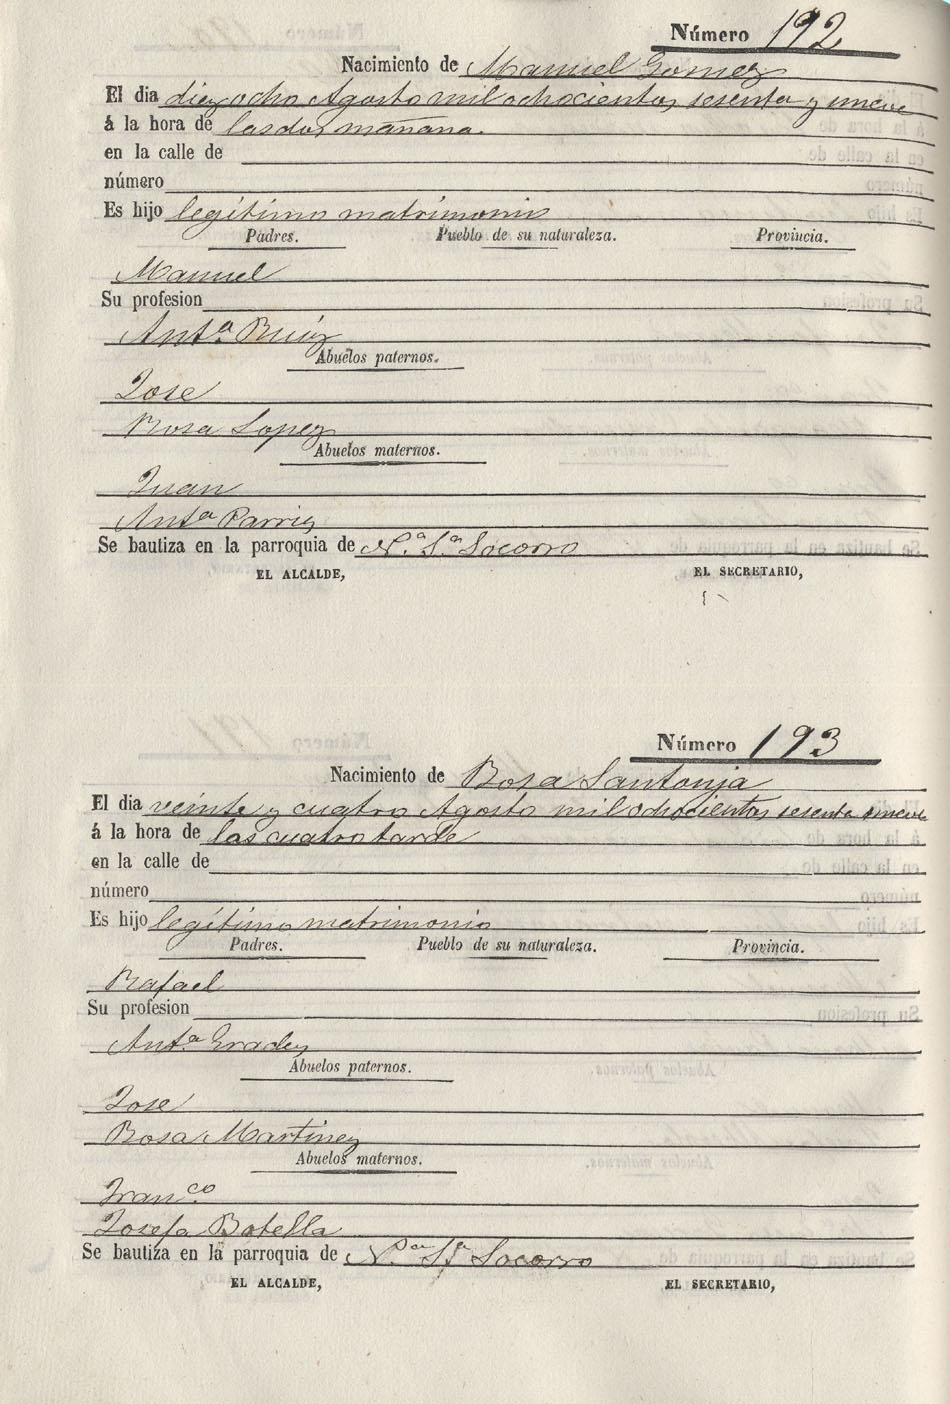 Número 192
Nacimiento de Manuel Gomez
El dia diez ocho Agosto mil ochocientos sesenta y nueve
á la hora de las dos mañana.
en la calle de
número
Es hijo legítimo matrimonio
Padres. Pueblo de su naturaleza. Provincia.
Manuel
Su profesion
Ant.ª Ruiz
Abuelos paternos.
Jose
Rosa Lopez
Abuelos maternos.
Juan
Ant.ª
Se bautiza en la parroquia de N.ª S.ª Socorro
EL ALCALDE, EL SECRETARIO,
Número 193
Nacimiento de Rosa Santonja
El dia veinte y cuatro Agosto mil ochocientos sesenta nueve
á la hora de las cuatro tarde
en la calle de
número
Es hijo legítimo matrimonio
Padres. Pueblo de su naturaleza. Provincia.
Rafael
Su profesion
Ant.ª Grades
Abuelos paternos.
Jose
Rosa Martinez
Abuelos maternos.
Fran.co
Josefa Botella
Se bautiza en la parroquia de N.ª S.ª Socorro
EL ALCALDE, EL SECRETARIO,